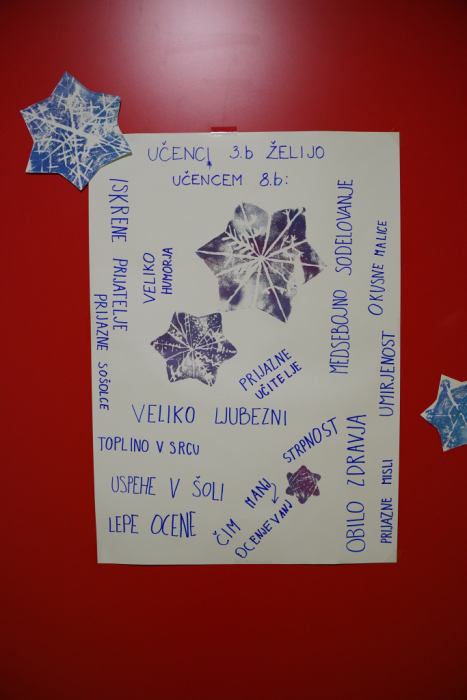 UČENCI 3.b ŽELIJO
UČENCEM 8.b:
ISKRENE PRIJATELJE
PRIJAZNE SOŠOLCE
VELIKO
HUMORJA
MEDSEBOJNO SODELOVANJE
OKUSNE MALICE
PRIJAZNE
UČITELJE
UMIRJENOST
VELIKO LJUBEZNI
TOPLINO V SRCU
STRPNOST
USPEHE V ŠOLI
LEPE OCENE
ČIM MANJ
OCENJEVANJ
OBILO ZDRAVJA
PRIJAZNE MISLI